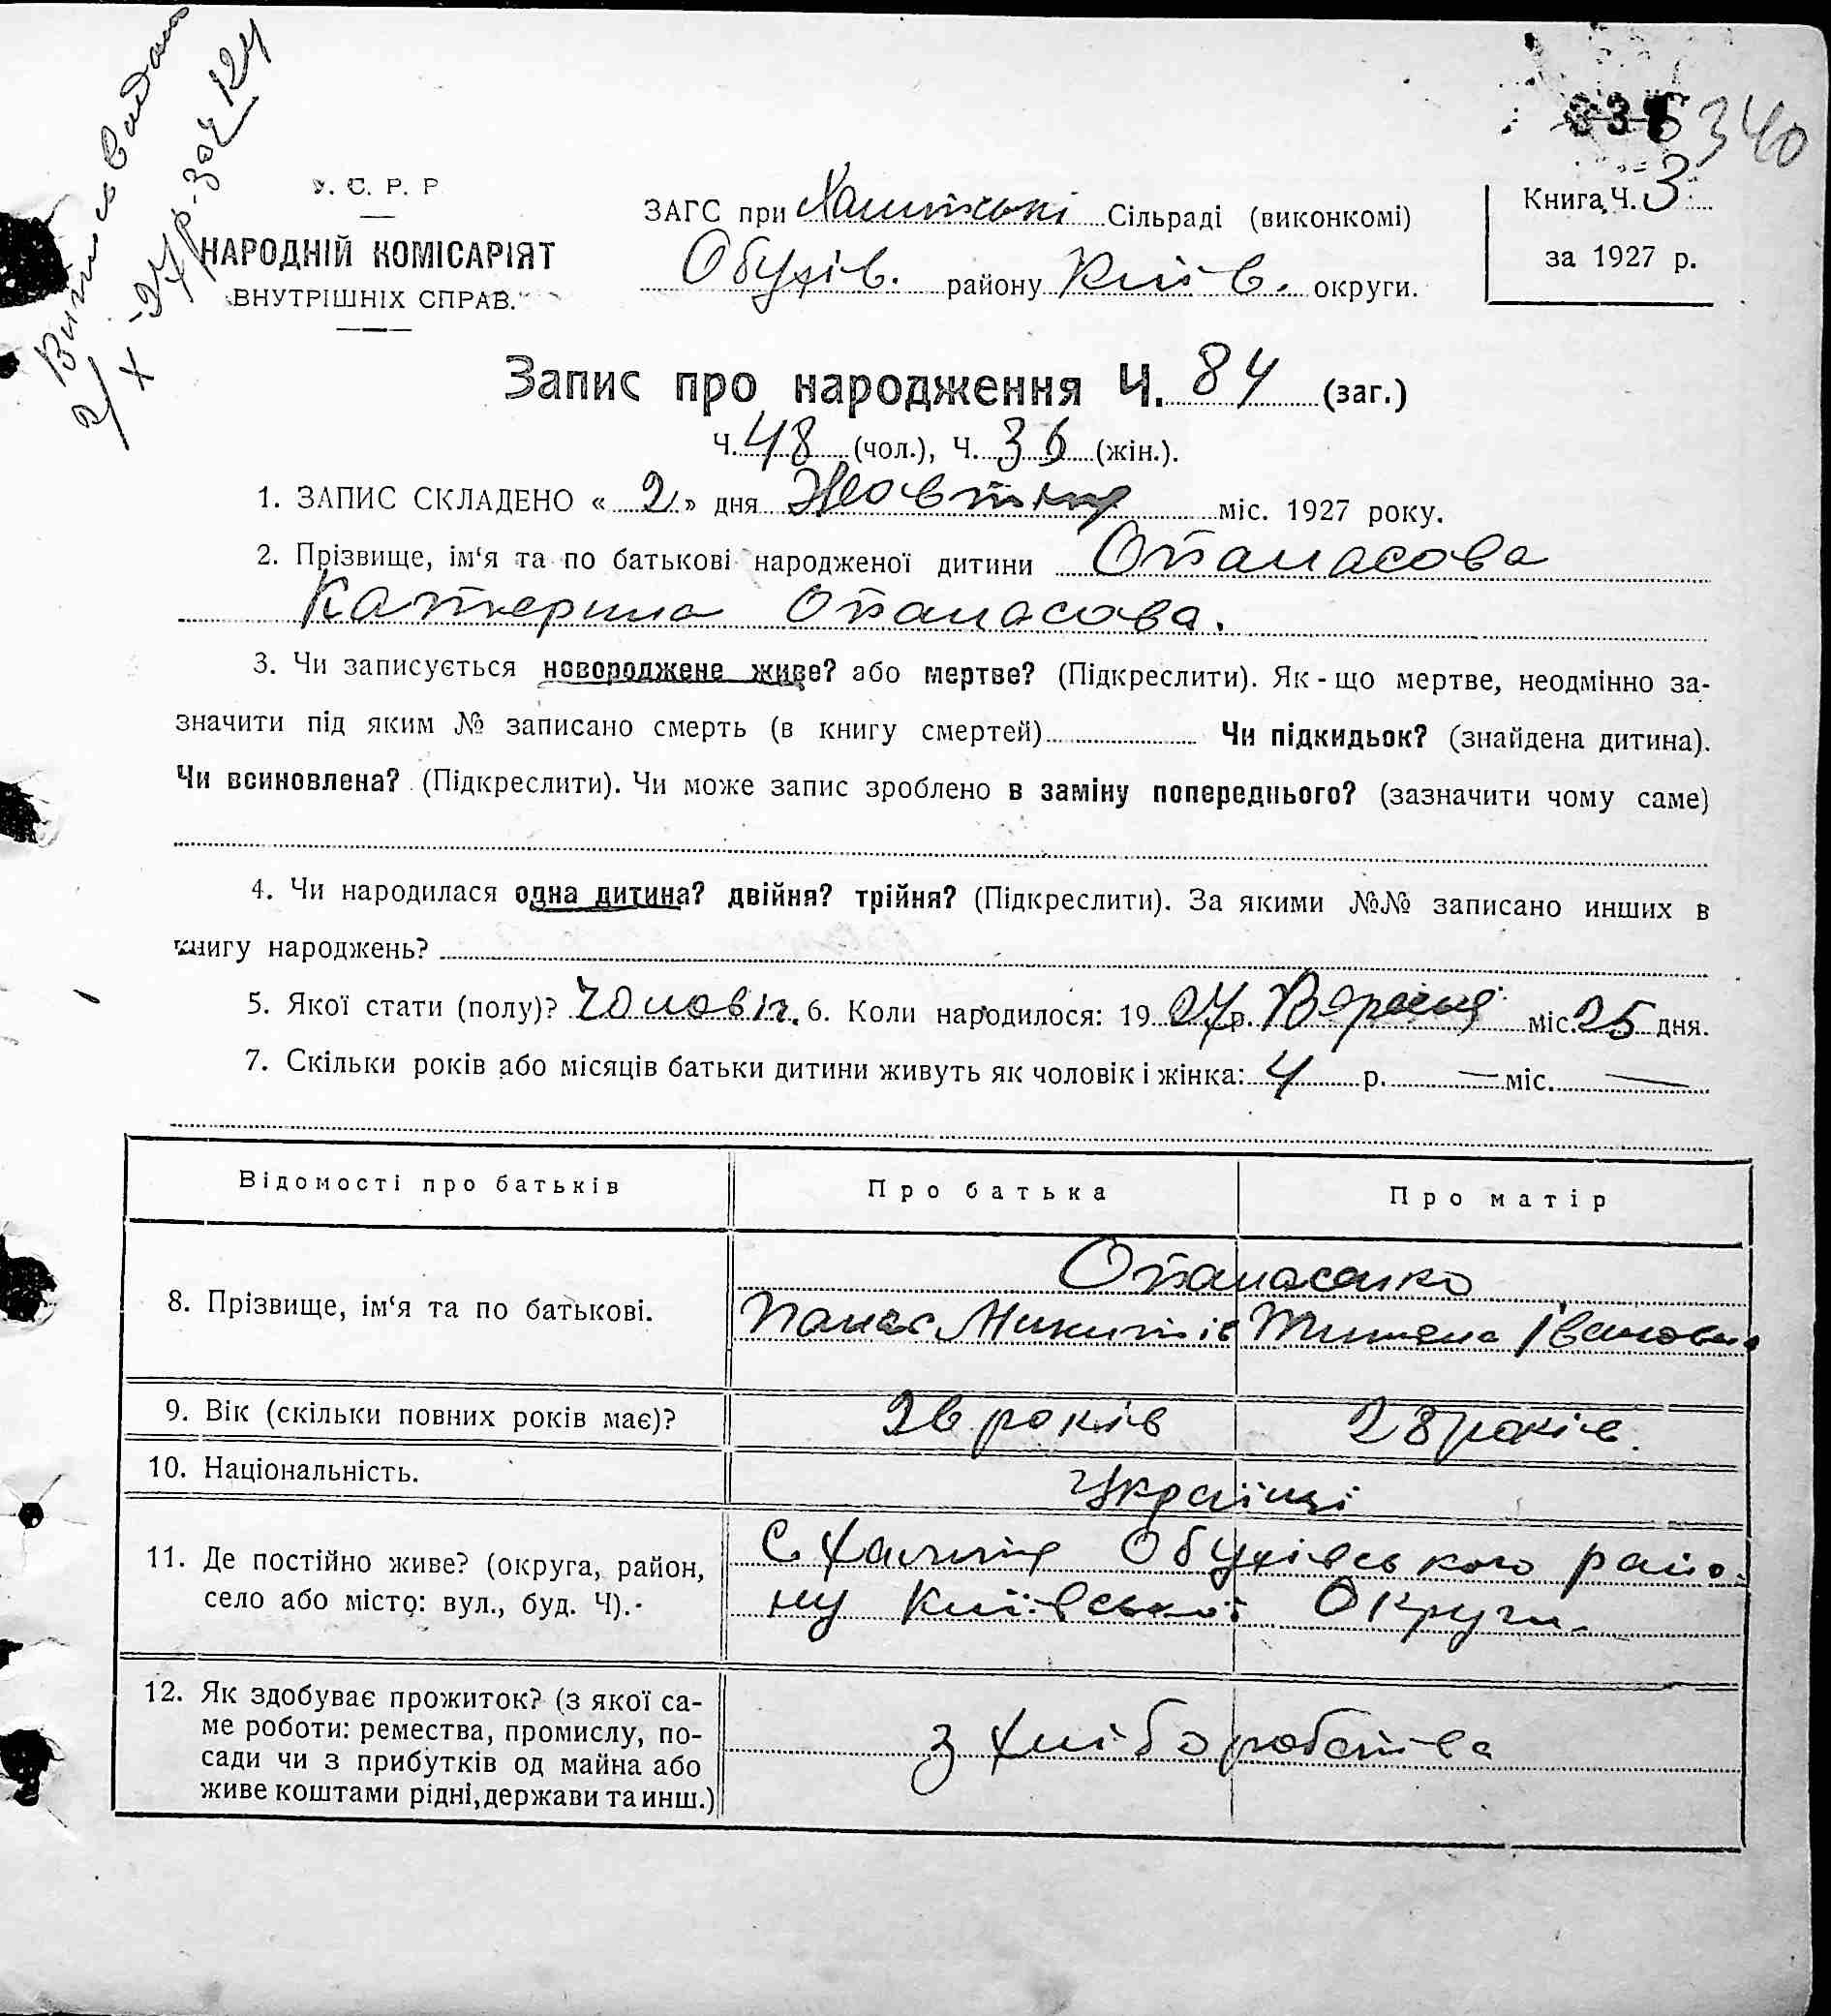 Виписъ видана
2/X-27 р. за Ч 124
336 340
У. С. Р. Р
НАРОДНІЙ КОМІСАРІЯТ
ВНУТРІШНІХ СПРАВ.
ЗАГС при Халепській Сільраді (виконкомі)
Обухів. району Київ. округи.
Книга Ч. 3
за 1927 р.
Запис про народження Ч. 84 (заг.)
Ч. 48 (чол.), Ч. 36 (жін.).
1. ЗАПИС СКЛАДЕНО « 2 » дня Жовтня міс. 1927 року.
2. Прізвище, ім‘я та по батькові народженої дитини Опанасова
Катерина Опанасова.
3. Чи записується новороджене живе? або мертве? (Підкреслити). Як-що мертве, неодмінно за-
значити під яким № записано смерть (в книгу смертей) Чи підкидьок? (знайдена дитина).
Чи всиновлена? (Підкреслити). Чи може запис зроблено в заміну попереднього? (зазначити чому саме)
4. Чи народилася одна дитина? двійня? трійня? (Підкреслити). За якими №№ записано инших в
книгу народжень?
5. Якої стати (полу)? Чоловіч. 6. Коли народилося: 19 27 р. Вересня міс. 25 дня.
7. Скільки років або місяців батьки дитини живуть як чоловік і жінка: 4 р. — міс. —
Відомості про батьків Про батька Про матір
8. Прізвище, ім‘я та по батькові. Опанасенко
Панас Микитів Тетяна Іванова
9. Вік (скільки повних років має)? 26 років 28 років.
10. Національність. Українці
11. Де постійно живе? (округа, район, С. Халепя Обухівського райо-
село або місто: вул., буд. Ч). ну Київської Округи.
12. Як здобуває прожиток? (з якої са-
ме роботи: ремества, промислу, по-
сади чи з прибутків од майна або з хліборобства
живе коштами рідні, держави та инш.)